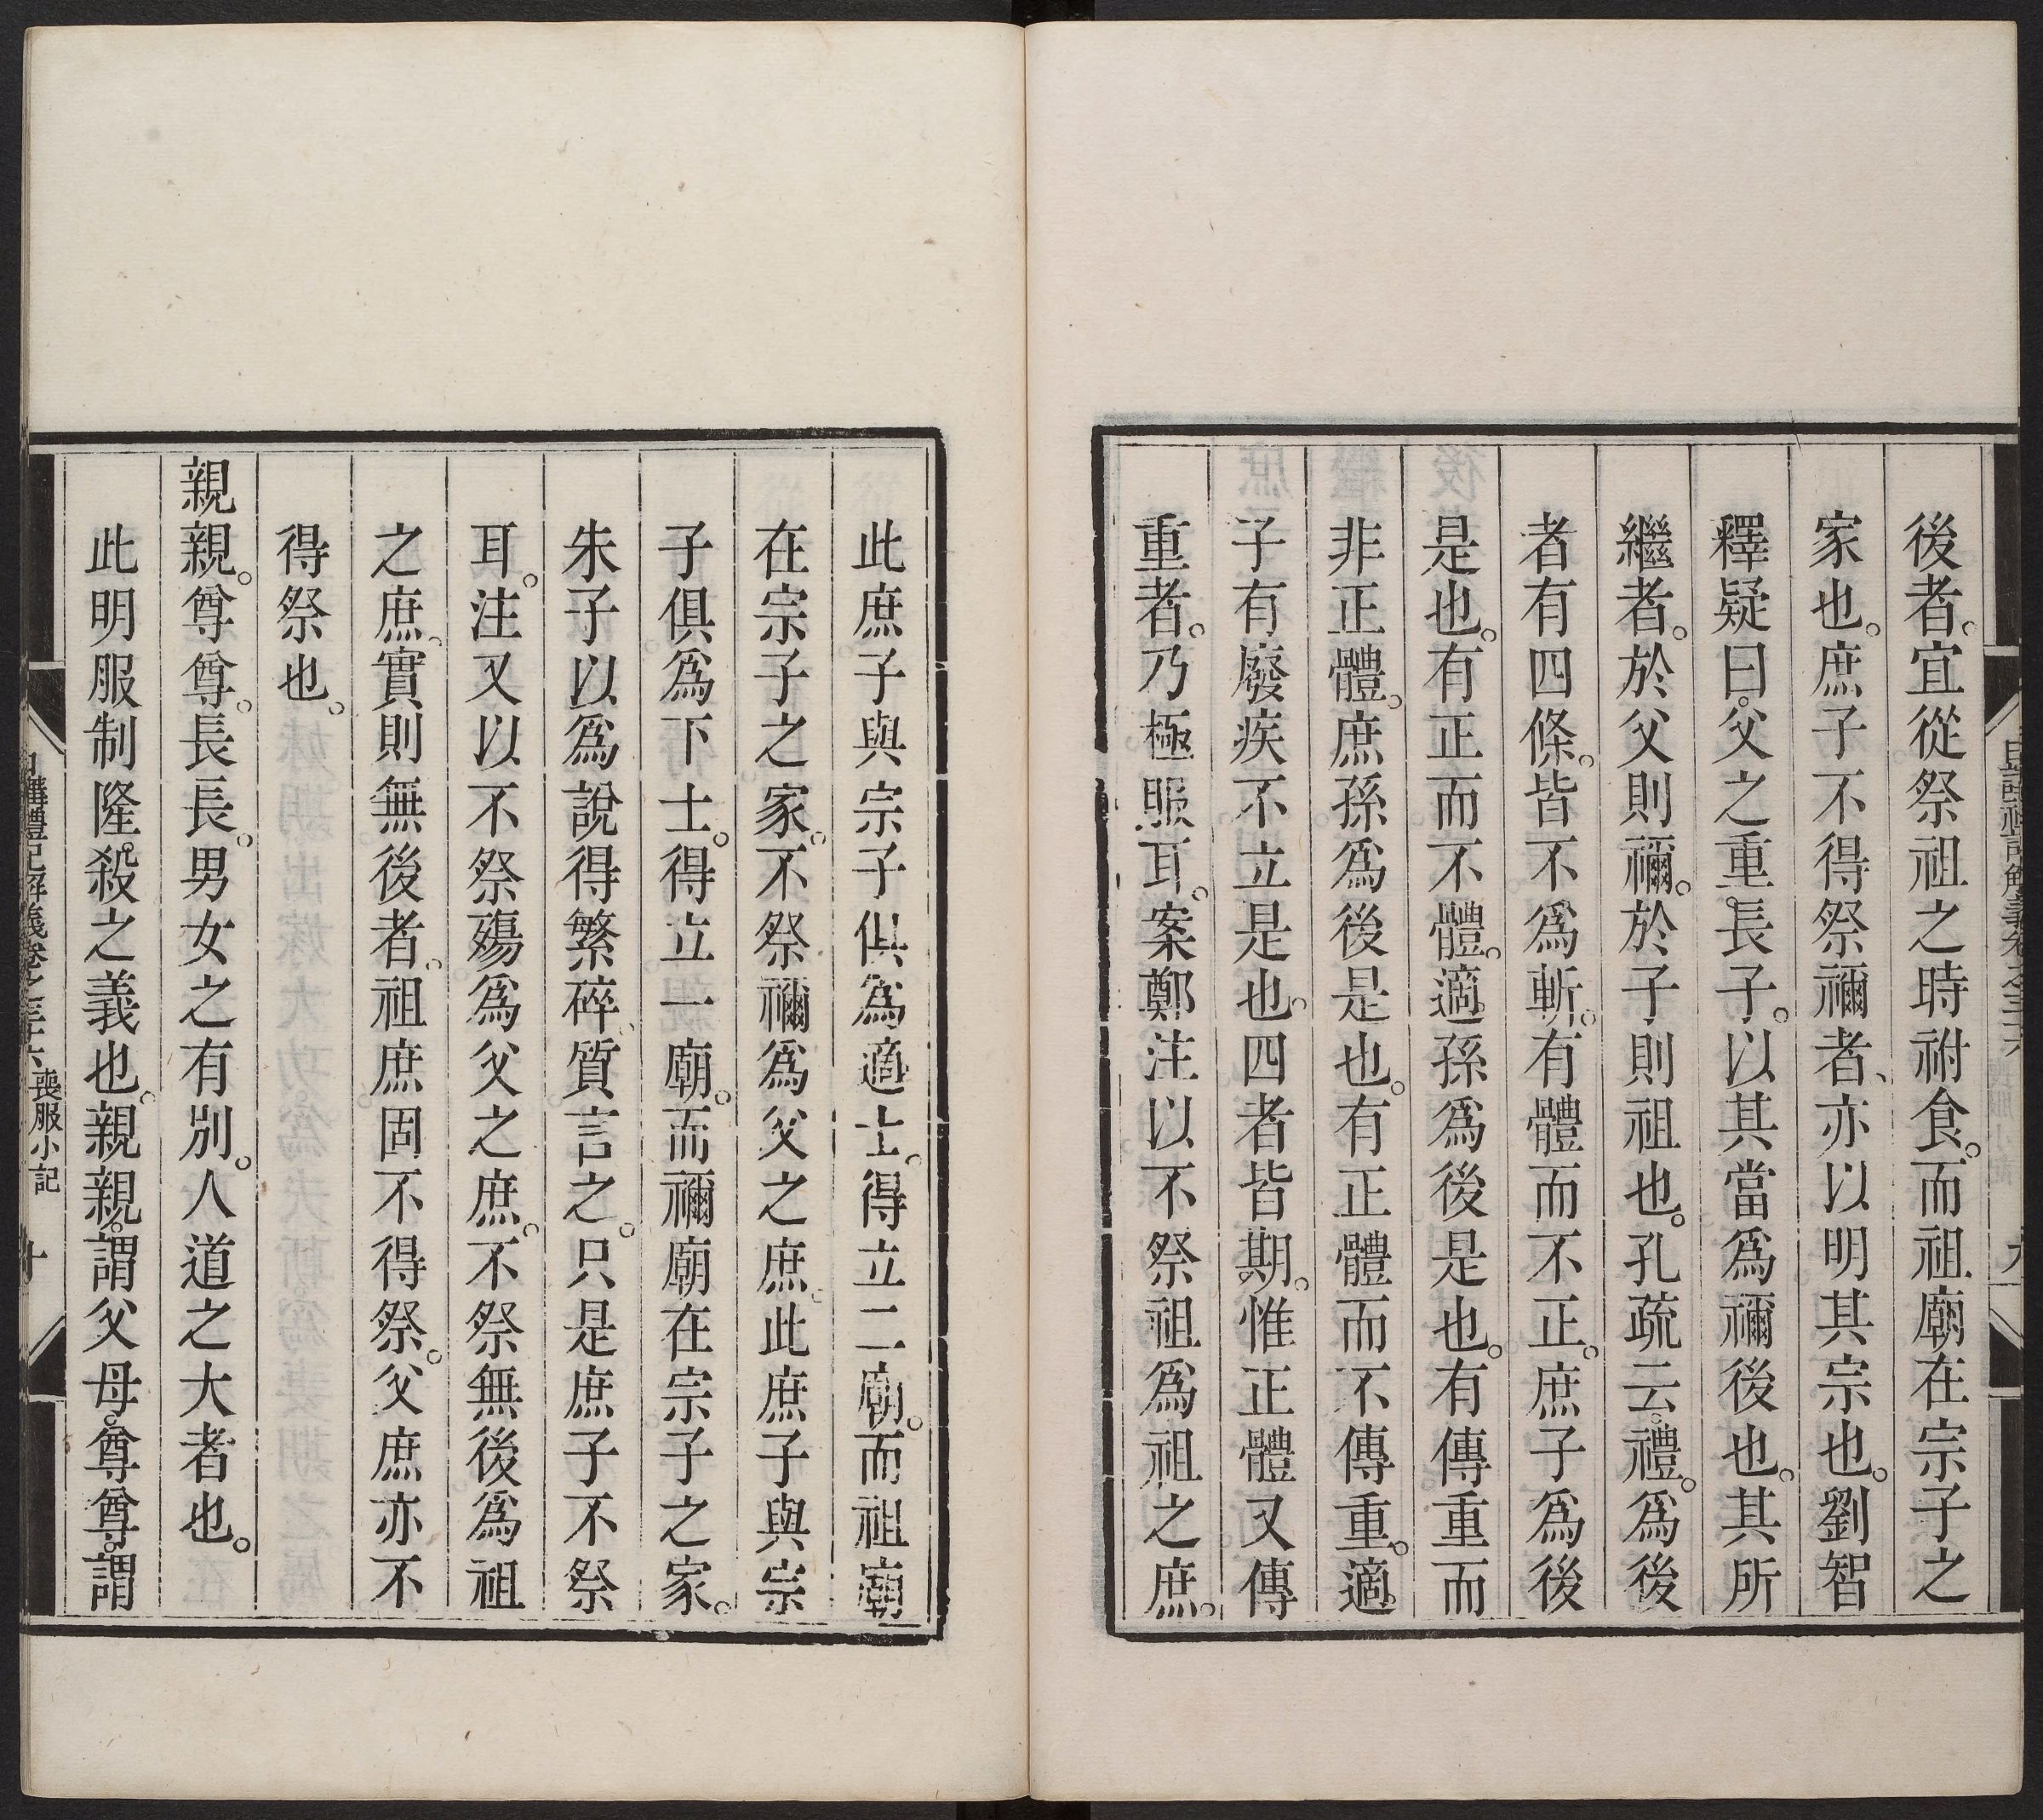 後者。宜從祭祖之時祔食。而祖廟在宗子之
家也。庶子不得祭禰者、亦以明其宗也。劉智
釋疑曰。父之重。長子。以其當爲禰後也。其所
繼者。於父則禰。於子則祖也。孔疏云。禮。爲後
者有四條。皆不爲斬。有體而不正。庶子爲後
是也。有正而不體。適孫爲後是也。有傳重而
非正體。庶孫爲後是也。有正體而不傳重。適
子有廢疾不立是也。四者皆期。惟正體又傳
重者。乃極服耳。案鄭注以不祭祖爲祖之庶。
此庶子與宗子俱爲適士。得立二廟。而祖廟
在宗子之家。不祭禰爲父之庶。此庶子與宗
子俱爲下士。得立一廟。而禰廟在宗子之家。
朱子以爲說得繁碎、質言之。只是庶子不祭
耳。注又以不祭殤爲父之庶。不祭無後爲祖
之庶。實則無後者。祖庶固不得祭。父庶亦不
得祭也。
親親。尊尊。長長。男女之有別。人道之大者也。
此明服制隆殺之義也。親親。謂父母。尊尊。謂
日講禮記解義卷之三十六 喪服小記 十